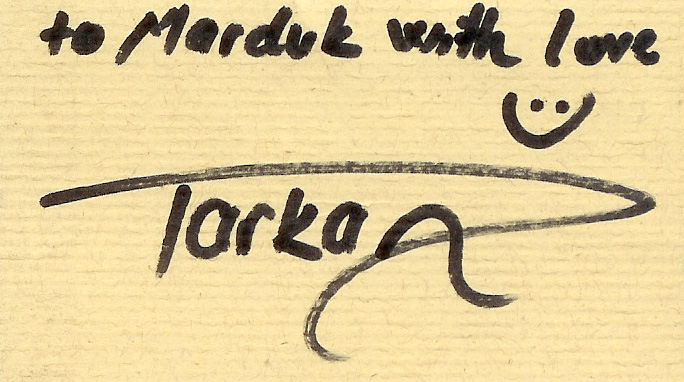 to Marduk with love
Tarka